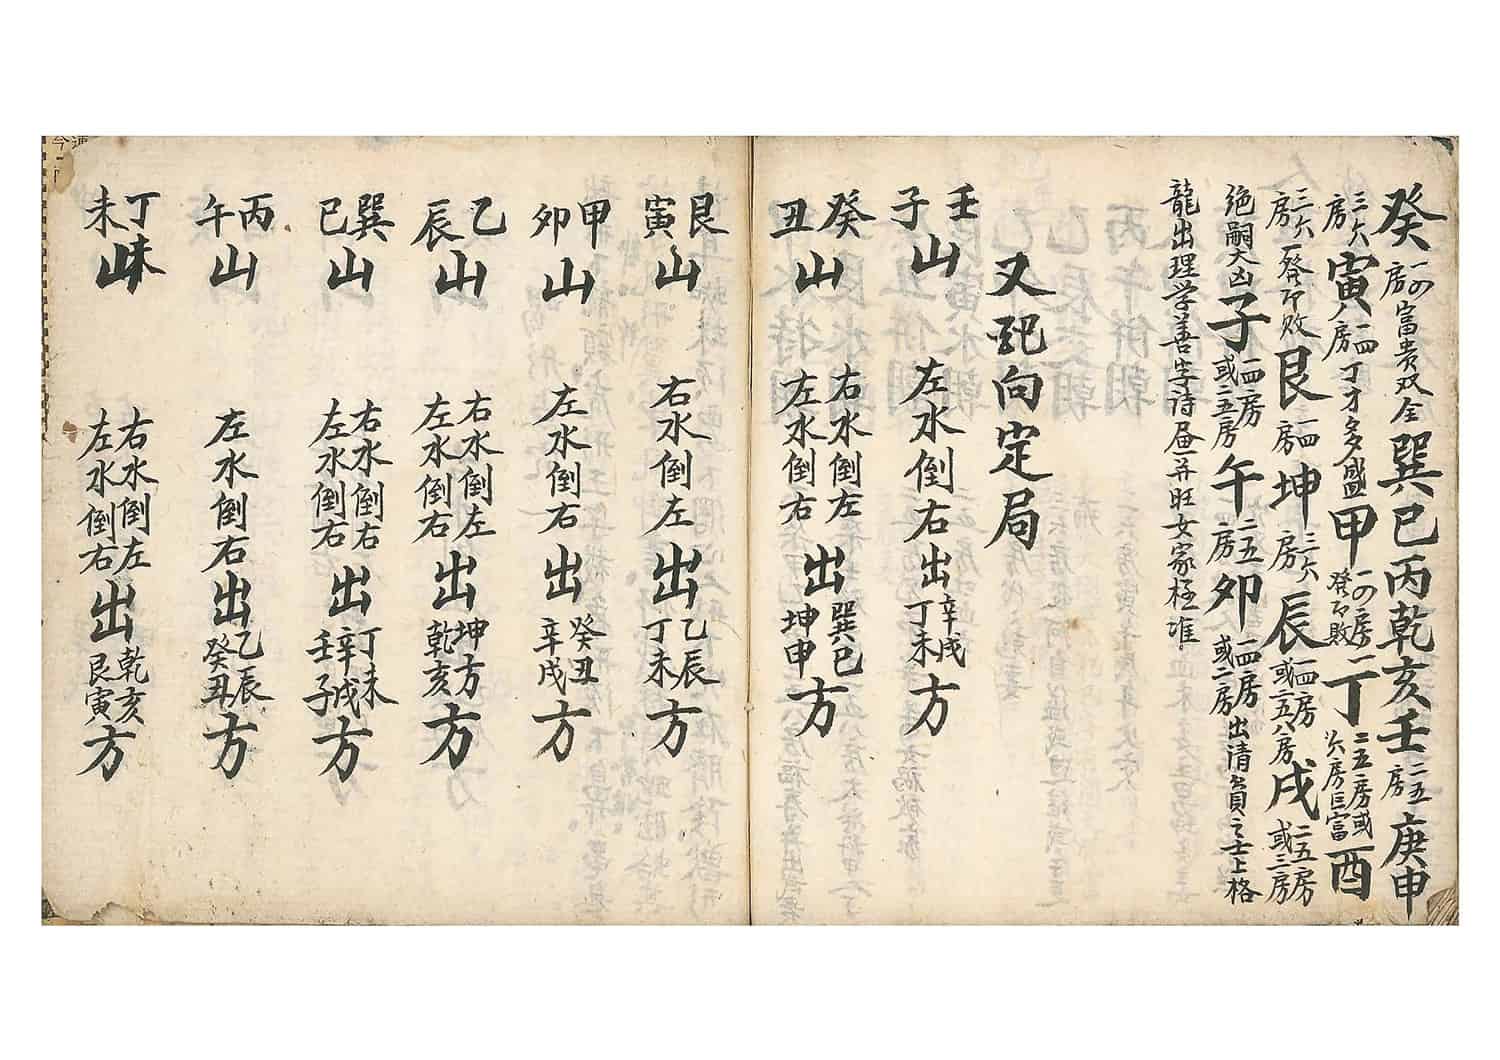 癸一四房富貴双全巽巳丙乾亥壬二五房庚申
三六房寅一四房丁才多盛甲一四房發即敗丁二五房或六房巨富酉
三六房發即敗艮一四房坤三六房辰一四房或二五八房戌二五房或三房
绝嗣大凶子一四房或二五房午二五房卯一四房或一房出清貟之士上格
龍出理学善字诗昼并旺女家極准
又配向定局
壬子山 左水倒右出辛戌丁未方
癸丑山 右水倒左左水倒右出巽巳坤申方
艮寅山 右水倒左出乙辰丁未方
甲卯山 左水倒右出癸丑辛戌方
乙辰山 右水倒左左水倒右出坤方乾亥方
巽巳山 右水倒右左水倒右出丁未辛戌壬子方
丙午山 左水倒右出乙辰癸丑方
丁未山 右水倒左左水倒右出乾亥艮寅方